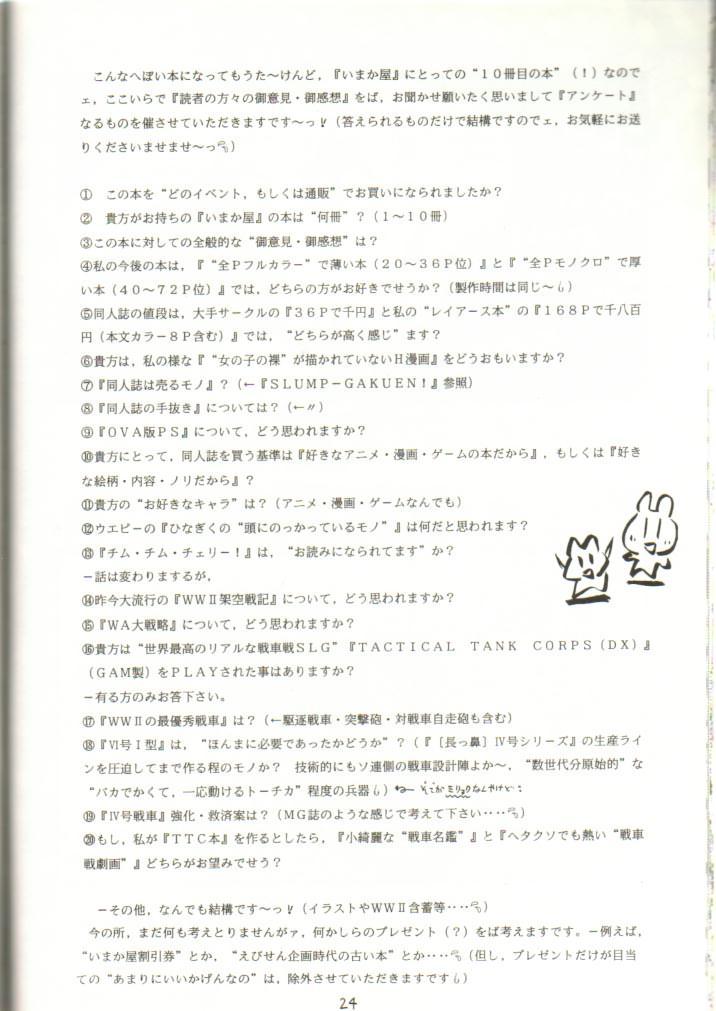 こんなへぼい本になってもうた～けんど，『いまか屋』にとっての“１０冊目の本”（！）なので
ェ，ここいらで『読者の方々の御意見・御感想』をば，お聞かせ願いたく思いまして『アンケート』
なるものを催させていただきますです～っ！（答えられるものだけで結構ですのでェ，お気軽にお送
りくださいませませ～っ）
①　この本を“どのイベント，もしくは通販”でお買いになられましたか？
②　貴方がお持ちの『いまか屋』の本は“何冊”？（１～１０冊）
③この本に対しての全般的な“御意見・御感想”は？
④私の今後の本は，『“全Ｐフルカラー”で薄い本（２０～３６Ｐ位）』と『“全Ｐモノクロ”で厚
い本（４０～７２Ｐ位）』では，どちらの方がお好きでせうか？（製作時間は同じ～）
⑤同人誌の値段は，大手サークルの『３６Ｐで千円』と私の“レイアース本”の『１６８Ｐで千八百
円（本文カラー８Ｐ含む）』では，“どちらが高く感じ”ます？
⑥貴方は，私の様な『“女の子の裸”が描かれていないＨ漫画』をどうおもいますか？
⑦『同人誌は売るモノ』？（←『ＳＬＵＭＰ－ＧＡＫＵＥＮ！』参照）
⑧『同人誌の手抜き』については？（←〃）
⑨『ＯＶＡ版ＰＳ』について，どう思われますか？
⑩貴方にとって，同人誌を買う基準は『好きなアニメ・漫画・ゲームの本だから』，もしくは『好き
な絵柄・内容・ノリだから』？
⑪貴方の“お好きなキャラ”は？（アニメ・漫画・ゲームなんでも）
⑫ウエピーの『ひなぎくの“頭にのっかっているモノ”』は何だと思われます？
⑬『チム・チム・チェリー！』は，“お読みになられてます”か？
－話は変わりまするが，
⑭昨今大流行の『ＷＷⅡ架空戦記』について，どう思われますか？
⑮『ＷＡ大戦略』について，どう思われますか？
⑯貴方は“世界最高のリアルな戦車戦ＳＬＧ”『ＴＡＣＴＩＣＡＬ　ＴＡＮＫ　ＣＯＲＰＳ（ＤＸ）』
（ＧＡＭ製）をＰＬＡＹされた事はありますか？
－有る方のみお答下さい。
⑰『ＷＷⅡの最優秀戦車』は？（←駆逐戦車・突撃砲・対戦車自走砲も含む）
⑱『Ⅵ号Ⅰ型』は，“ほんまに必要であったかどうか”？（『〔長っ鼻〕Ⅳ号シリーズ』の生産ライ
ンを圧迫してまで作る程のモノか？　技術的にもソ連側の戦車設計陣よか～，“数世代分原始的”な
“バカでかくて，一応動けるトーチカ”程度の兵器）← そこがミリョクなんやけど…
⑲『Ⅳ号戦車』強化・救済案は？（ＭＧ誌のような感じで考えて下さい‥‥）
⑳もし，私が『ＴＴＣ本』を作るとしたら，『小綺麗な“戦車名鑑”』と『ヘタクソでも熱い“戦車
戦劇画”』どちらがお望みでせう？
－その他，なんでも結構です～っ！（イラストやＷＷⅡ含蓄等‥‥）
今の所，まだ何も考えとりませんがァ，何かしらのプレゼント（？）をば考えますです。－例えば，
“いまか屋割引券”とか，“えびせん企画時代の古い本”とか‥‥（但し，プレゼントだけが目当
ての“あまりにいいかげんなの”は，除外させていただきますです）
24